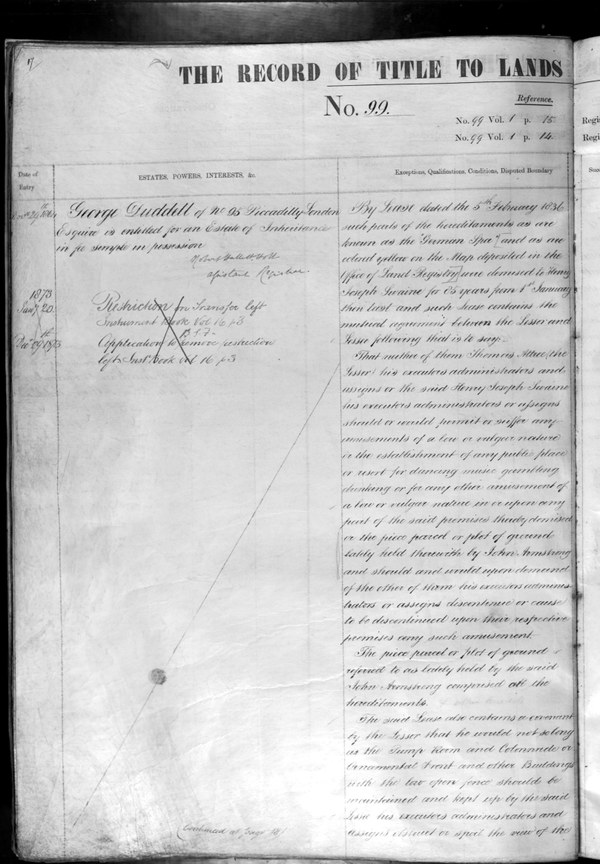 THE RECORD OF TITLE TO LANDS
No. 99.
Reference.
No. 99 Vol. 1 p. 15
No. 99 Vol. 1 p. 14.
Date of
Entry
ESTATES, POWERS, INTERESTS, &c.
Exceptions, Qualifications, Conditions, Disputed Boundary
George Duddell of No 95 Piccadilly London
Esquire is entitled for an Estate of Inheritance
in fee simple in possession
Assistant Registrar
1873
Jany 20.
Restriction on Transfer left
Instrument Book Vol 16 p3
Application to remove restriction
left Inst. Book Vol 16 p3
By Lease dated the 5th February 1836
such parts of the hereditaments as are
known as the "German Spa" and as are
colored yellow on the Map deposited in the
Office of Land Registry are demised to Henry
Joseph Swaine for 85 years from 1st January
then last and such Lease contains the
mutual agreement between the Lessor and
Lessee following that is to say:
That neither of them Thomas Attree the
Lessor his executors administrators and
assigns or the said Henry Joseph Swaine
his executors administrators or assigns
should or would permit or suffer any
amusements of a low or vulgar nature
or the establishment of any public place
or resort for dancing music gambling
drinking or for any other amusement of
a low or vulgar nature in or upon any
part of the said premises thereby demised
or the piece parcel or plot of ground
lately held therewith by John Armstrong
and should and would upon demand
of the other of them his executors adminis
trators or assigns discontinue or cause
to be discontinued upon their respective
premises any such amusement.
The piece parcel or plot of ground
referred to as lately held by the said
John Armstrong comprised all the
hereditaments.
The said Lease also contains a covenant
by the Lessor that he would not so long
as the Pump Room and Colonnade or
Ornamental Front and other Buildings
with the low open fence should be
maintained and kept up by the said
Lessee his executors administrators and
assigns obstruct or injure the view of the
Continued at page